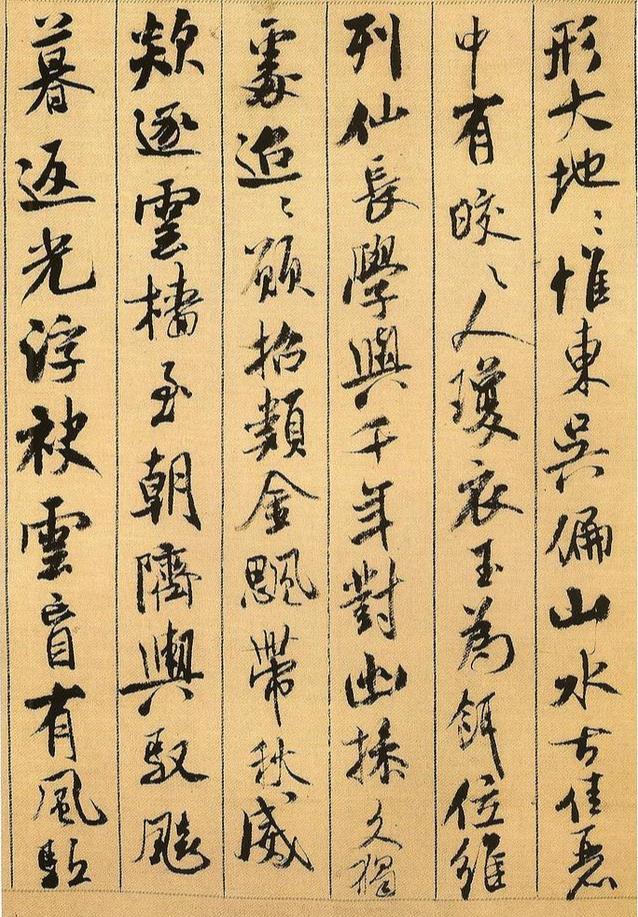 形大地〻惟東吳偏山水古佳麗
中有皎〻人瓊衣玉為餌位維
列仙長學與千年對幽操久獨
處迢〻願招類金飔帶秋威
欻逐雲檣至朝隮輿馭飈
暮返光浮袂雲盲有風駈